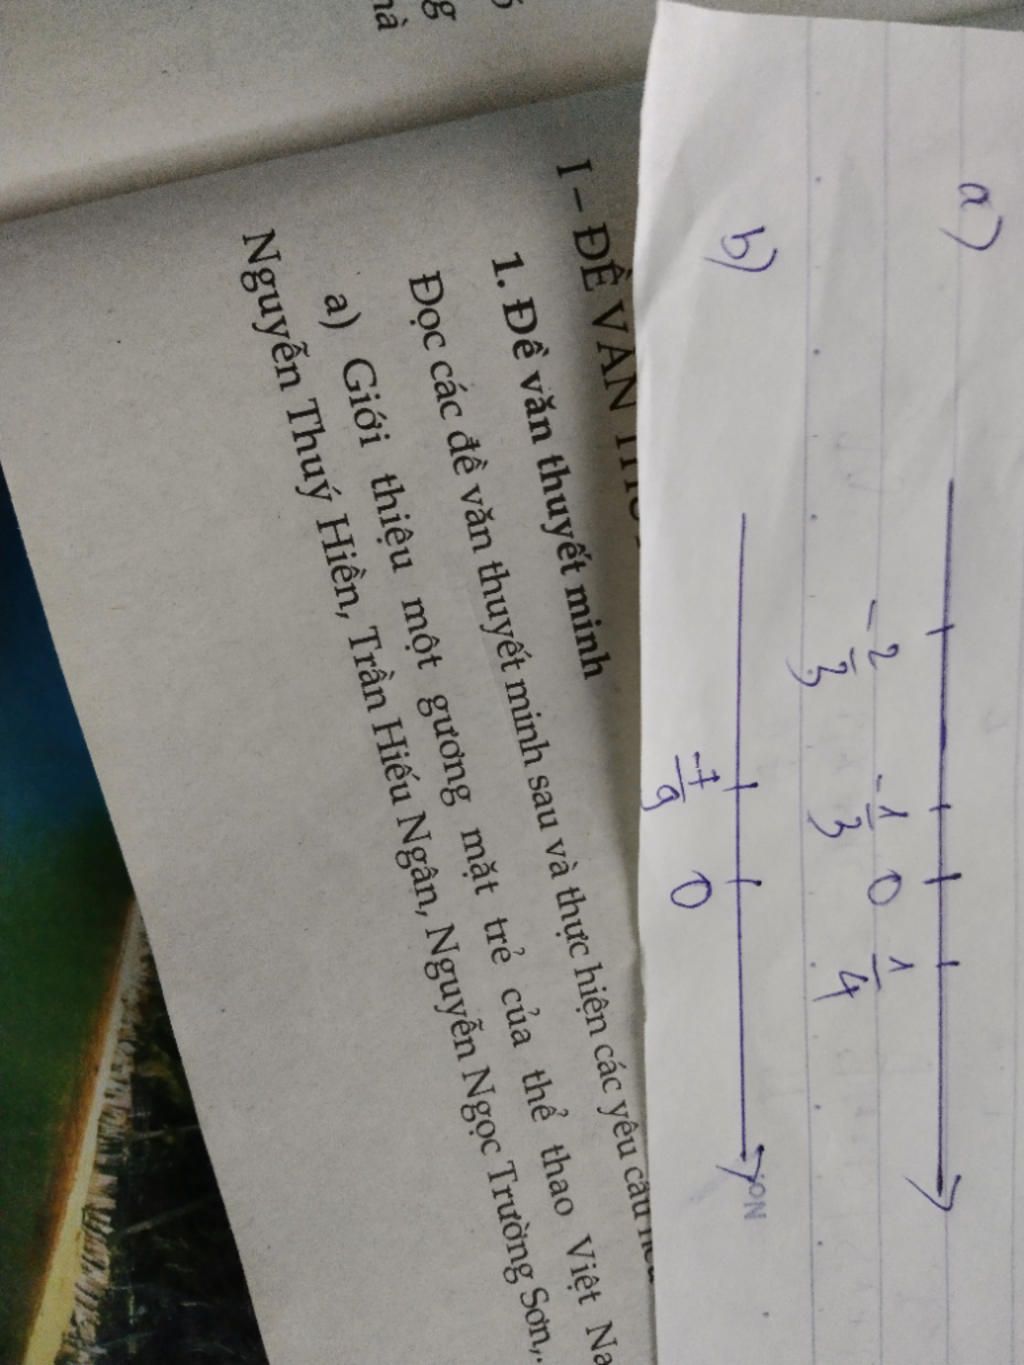 a)
-2/3 -1/3 0 1/4
b)
-7/9 0
g
hà
I – ĐỀ VĂN
1. Đề văn thuyết minh
Đọc các đề văn thuyết minh sau và thực hiện các yêu cầu
a) Giới thiệu một gương mặt trẻ của thể thao Việt Na
Nguyễn Thuý Hiền, Trần Hiếu Ngân, Nguyễn Ngọc Trường Sơn,.